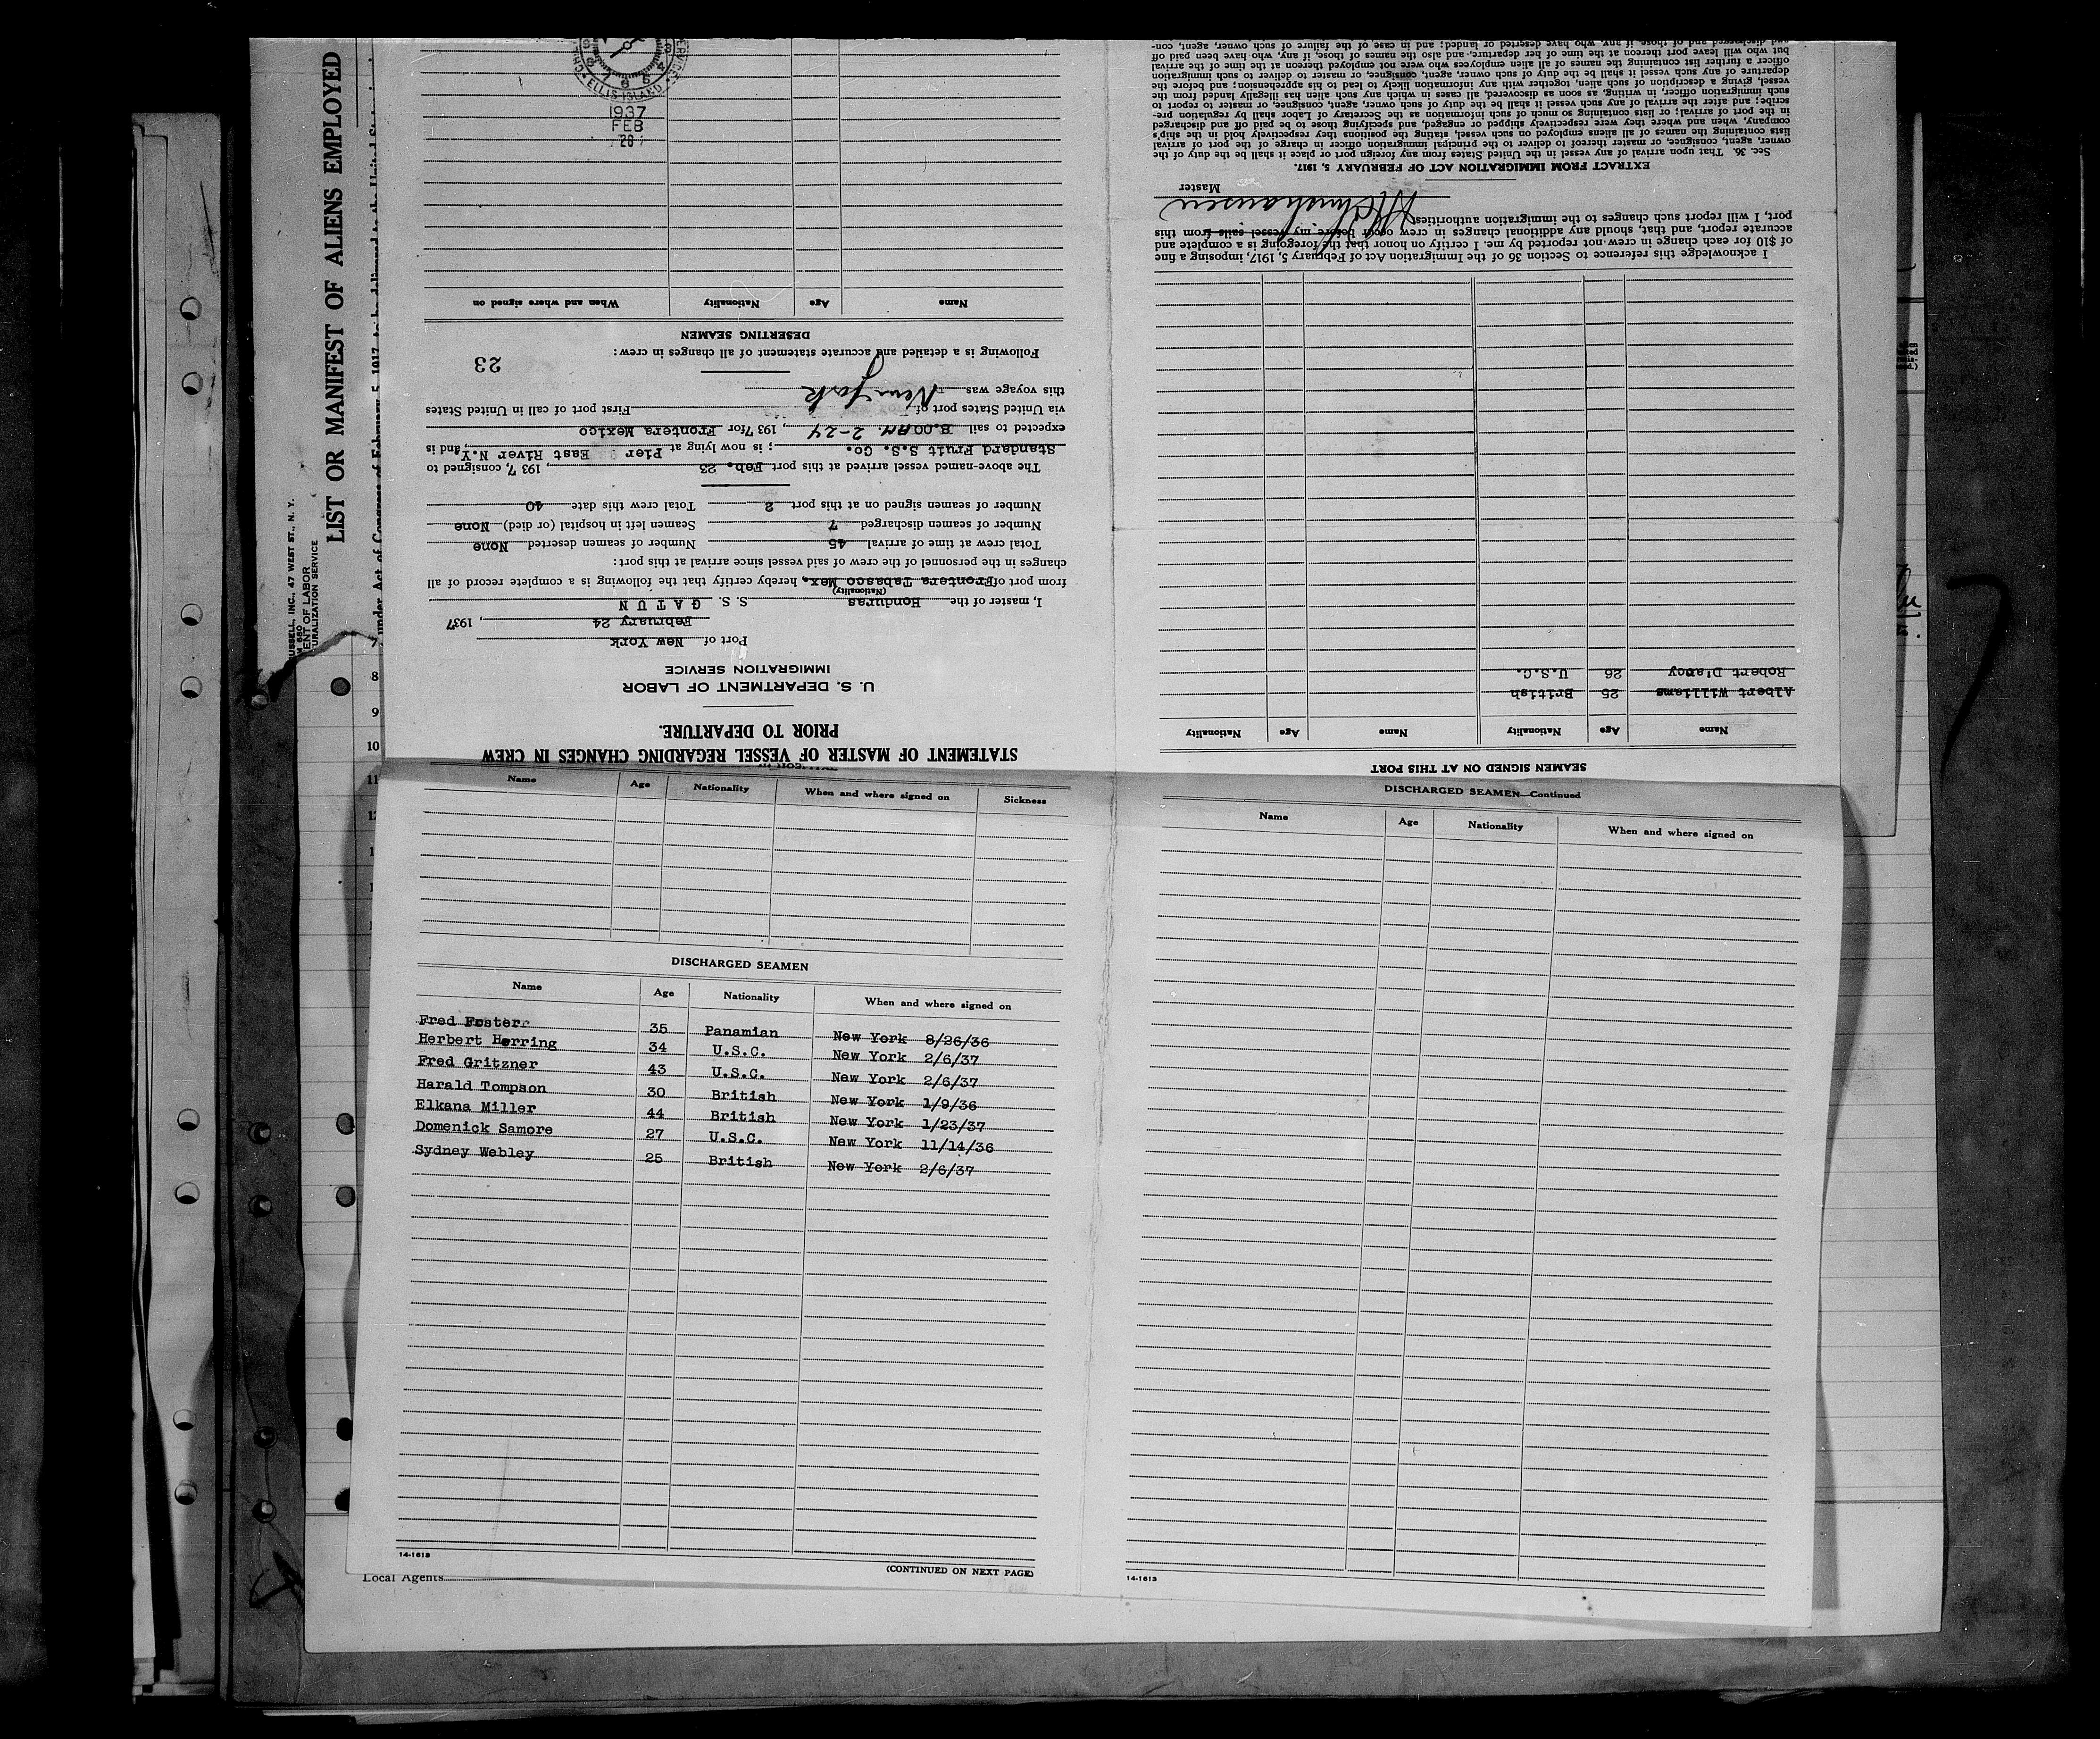 LIST OR MANIFEST OF ALIENS EMPLOYED
USSELL, INC., 47 WEST ST., N. Y.
680
ENT OF LABOR
URALIZATION SERVICE
7
8
9
10
11
STATEMENT OF MASTER OF VESSEL REGARDING CHANGES IN CREW
PRIOR TO DEPARTURE.
U. S. DEPARTMENT OF LABOR
IMMIGRATION SERVICE
Port of New York
February 24, 1937
I, master of the Honduras S. S. GATUN
(Nationality)
from port of Frontera Tabasco Mex., hereby certify that the following is a complete record of all
changes in the personnel of the crew of said vessel since arrival at this port:
Total crew at time of arrival 45 Number of seamen deserted None
Number of seamen discharged 7 Seamen left in hospital (or died) None
Number of seamen signed on at this port 2 Total crew this date 40
The above-named vessel arrived at this port Feb. 23, 1937, consigned to
Standard Fruit S.S. Co. ; is now lying at Pier East River N.Y. and is
expected to sail 8.00 AM. 2-24, 1937 for Frontera Mexico
via United States port of First port of call in United States
this voyage was New York
Following is a detailed and accurate statement of all changes in crew:
23
DESERTING SEAMEN
Name Age Nationality When and where signed on
ELLIS ISLAND
1937
FEB
26
SEAMEN SIGNED ON AT THIS PORT
Name Age Nationality Name Age Nationality
Albert Williams 25 British
Robert D'arcy 26 U.S.C.
I acknowledge this reference to Section 36 of the Immigration Act of February 5, 1917, imposing a fine
of $10 for each change in crew not reported by me. I certify on honor that the foregoing is a complete and
accurate report, and that, should any additional changes in crew occur before my vessel sails from this
port, I will report such changes to the immigration authorities.
Master
EXTRACT FROM IMMIGRATION ACT OF FEBRUARY 5, 1917.
Sec. 36. That upon arrival of any vessel in the United States from any foreign port or place it shall be the duty of the
owner, agent, consignee, or master thereof to deliver to the principal immigration officer in charge of the port of arrival
lists containing the names of all aliens employed on such vessel, stating the positions they respectively hold in the ship's
company, when and where they were respectively shipped or engaged, and specifying those to be paid off and discharged
in the port of arrival; or lists containing so much of such information as the Secretary of Labor shall by regulation pre-
scribe; and after the arrival of any such vessel it shall be the duty of such owner, agent, consignee, or master to report to
such immigration officer, in writing, as soon as discovered, all cases in which any such alien has illegally landed from the
vessel, giving a description of such alien, together with any information likely to lead to his apprehension; and before the
departure of any such vessel it shall be the duty of such owner, agent, consignee, or master to deliver to such immigration
officer a further list containing the names of all alien employees who were not employed thereon at the time of the arrival
but who will leave port thereon at the time of her departure, and also the names of those, if any, who have been paid off
and discharged and of those, if any, who have deserted or landed; and in case of the failure of such owner, agent, con-
Name Age Nationality When and where signed on Sickness
DISCHARGED SEAMEN
Name Age Nationality When and where signed on
Fred Foster 35 Panamian New York 8/26/36
Herbert Herring 34 U.S.C. New York 2/6/37
Fred Gritzner 43 U.S.C. New York 2/6/37
Harald Tompson 30 British New York 1/9/36
Elkana Miller 44 British New York 1/23/37
Domenick Samore 27 U.S.C. New York 11/14/36
Sydney Webley 25 British New York 2/6/37
14-1613
(CONTINUED ON NEXT PAGE)
Local Agents
DISCHARGED SEAMEN—Continued
Name Age Nationality When and where signed on
14-1613